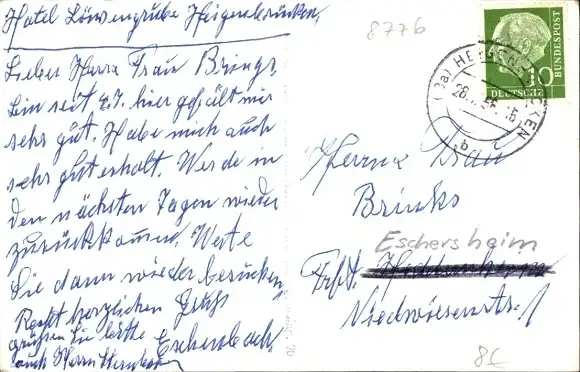 Hotel Löwengrube Heigenbrücken,
Lieber Herr u Frau Brings,
bin seit 4.7. hier gefällt mir
sehr gut. Habe mich auch
sehr gut erholt. Werde in
den nächsten Tagen wieder
zurückkommen. Werte
Sie dann wieder besuchen
Recht herzlichen Gruß
grüßen Sie bitte Eschenbach
auch Herrn
8776
HEIGENBRÜCKEN
(13a)
10
DEUTSCHE
BUNDESPOST
Herrn u Frau
Brinks
Eschersheim
Frkft.
Niedwiesenstr. 1
8€